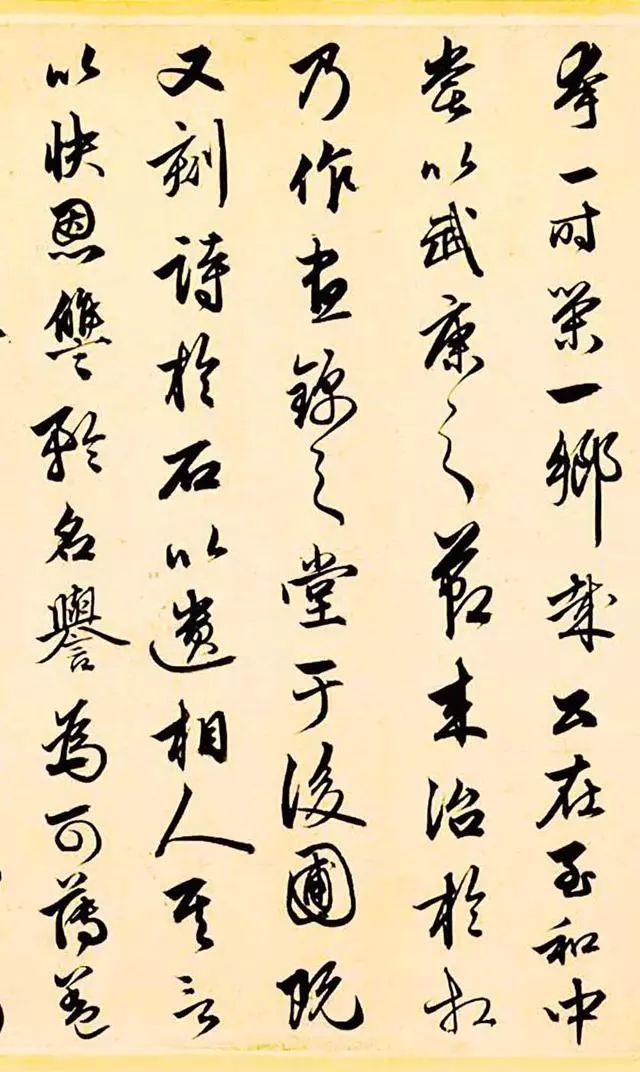 夸一時榮一鄉哉公在至和中
嘗以武康之節来治於相
乃作晝錦之堂于後圃既
又刻詩於石以遺相人其言
以快恩讐矜名譽為可薄蓋